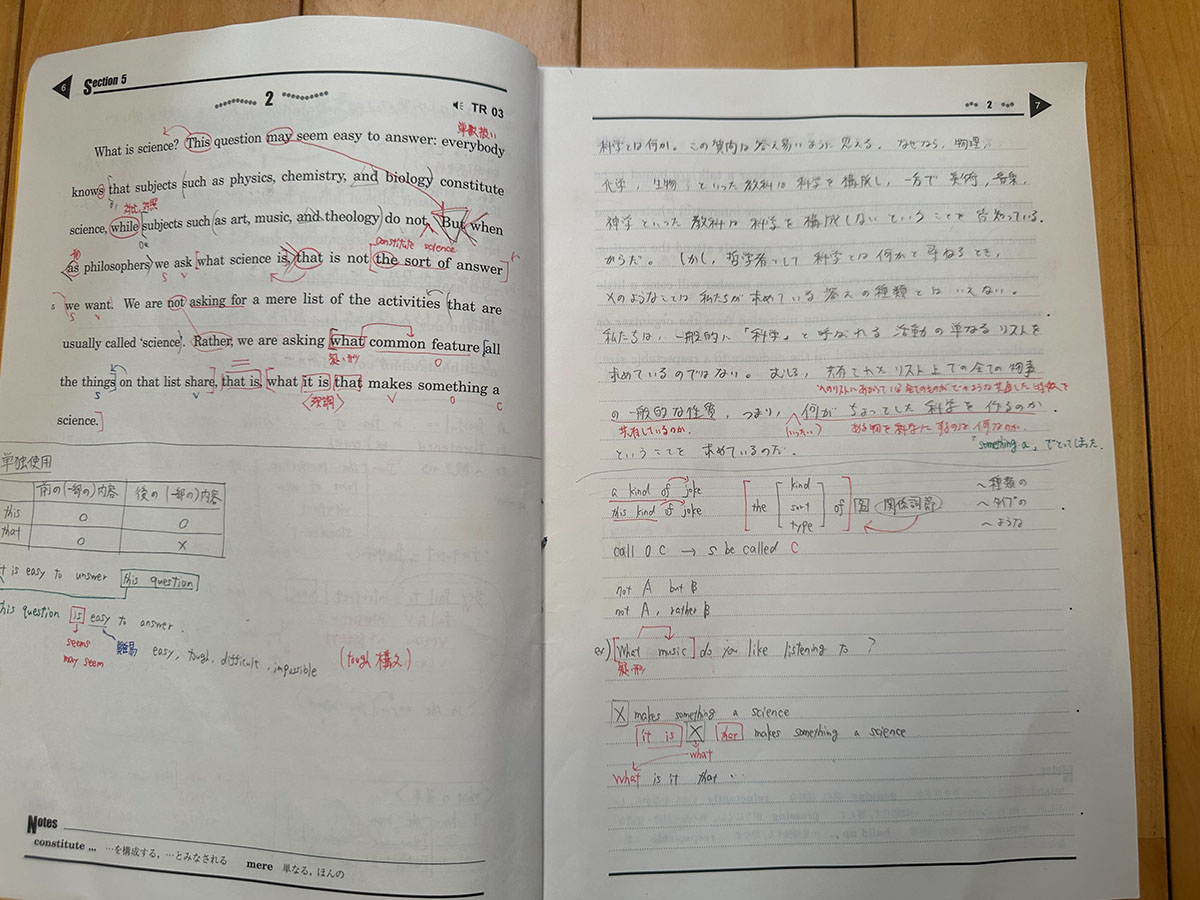 6 Section 5
2
TR 03
単数扱い
What is science? This question may seem easy to answer: everybody
knows that subjects such as physics, chemistry, and biology constitute
対比, 対照
science, while subjects such as art, music, and theology do not. But when
constitute science
as philosophers we ask what science is, that is not the sort of answer
S V
s we want. We are not asking for a mere list of the activities that are
S V
usually called ‘science’. Rather, we are asking what common feature all
疑・形 O
the things on that list share, that is, what it is that makes something a
S V 〈強調〉 V O C
science.
単独使用
前の(一部の)内容 後の(一部の)内容
this ○ ○
that ○ ×
it is easy to answer this question
this question is easy to answer.
seems 難易 easy, tough, difficult, impossible (tough 構文)
may seem
Notes
constitute ... …を構成する, …とみなされる mere 単なる, ほんの
2 7
科学とは何か。この質問は答え易いように思える。なぜなら, 物理,
化学, 生物, といった教科は科学を構成し, 一方で美術, 音楽,
神学といった教科は科学を構成しないということを皆知っている.
からだ。しかし, 哲学者として科学とは何かと尋ねるとき,
そのようなことは私たちが求めている答えの種類とはいえない。
私たちは, 一般的に「科学」と呼ばれる活動の単なるリストを
求めているのではない. むしろ, 共有されたリスト上での全ての物事
の一般的な性質, つまり, 何がちょっとした科学を作るのか
共有しているのか. (いったい) ある物を科学たらしめるのは何なのか.
ということを求めているのだ. 「something a」でとってしまった.
a kind of joke the kind of 名 関係詞節 〜種類の
this kind of joke sort 〜タイプの
type 〜ような
call O C → S be called C
not A but B
not A, rather B
ex) What music do you like listening to ?
疑・形
X makes something a science
it is X that makes something a science
what
What is it that …